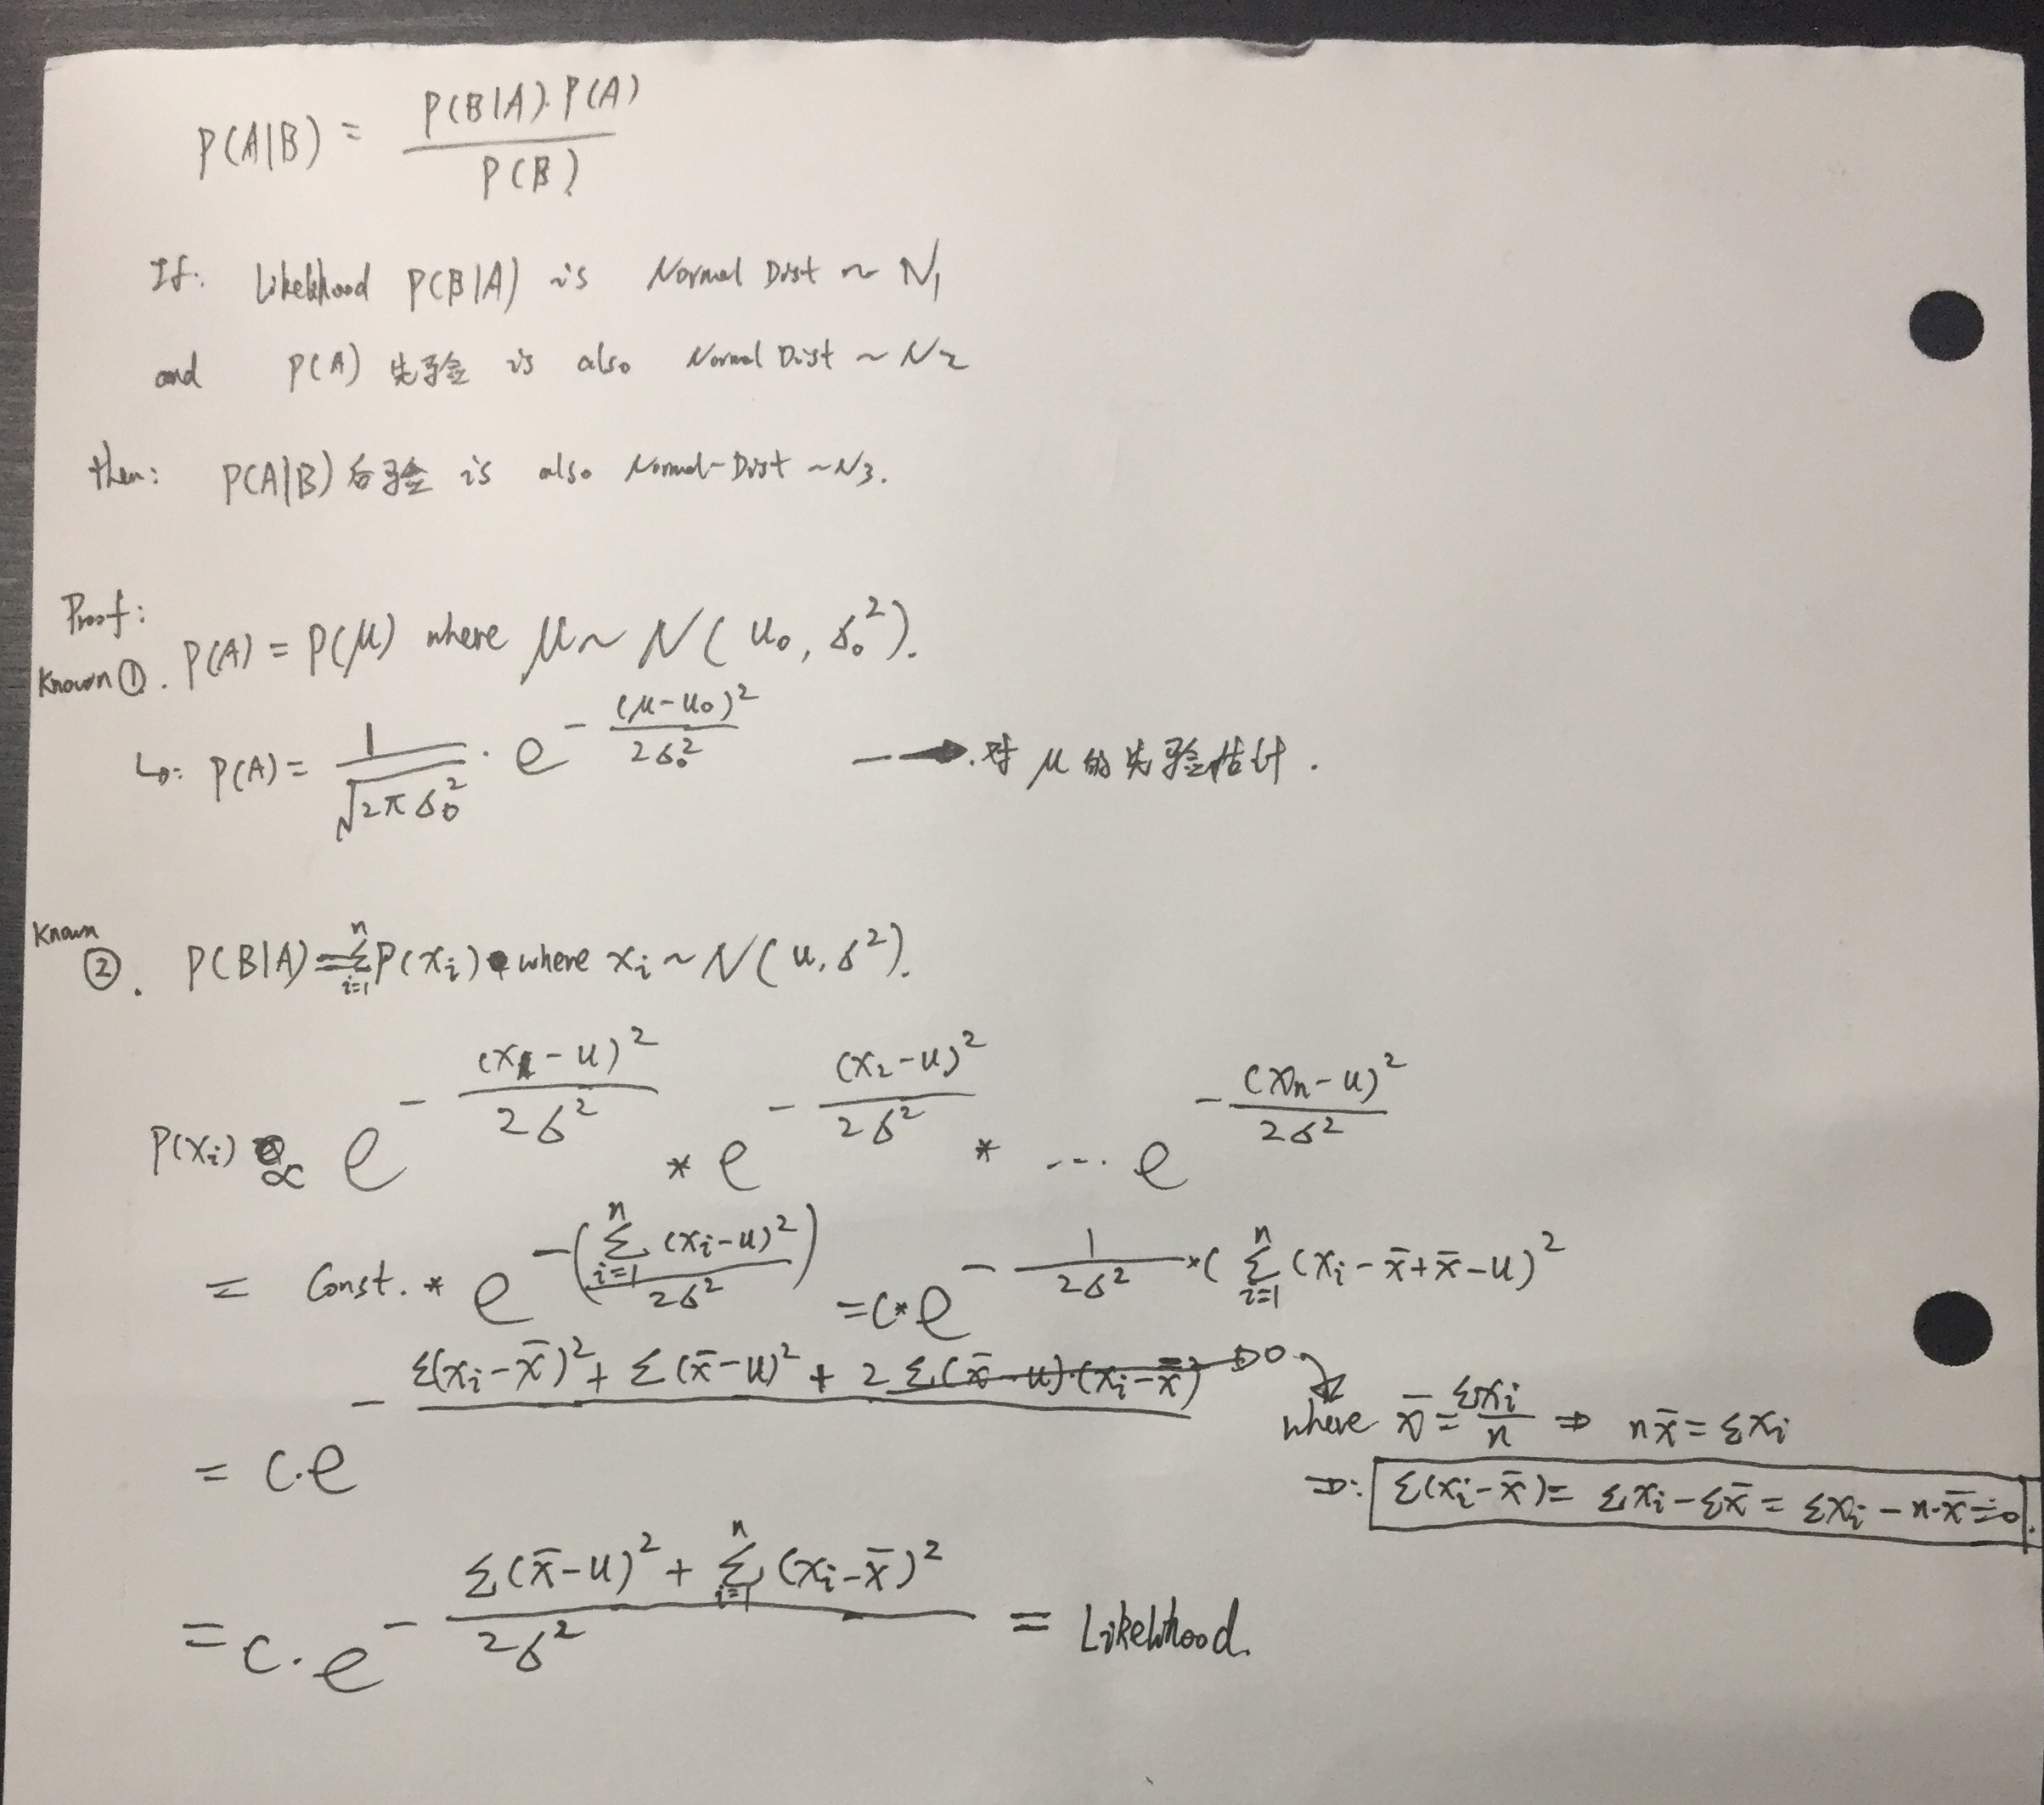 P(A|B) = P(B|A)·P(A) / P(B)
If: Likelihood P(B|A) is Normal Dist ~ N₁
and P(A) 先验 is also Normal Dist ~ N₂
then: P(A|B) 后验 is also Normal-Dist ~N₃.
Proof:
Known ①. P(A) = P(μ) where μ ~ N( u₀, σ₀²).
↳: P(A) = 1/√(2πσ₀²) · e^(-(μ-u₀)²/(2σ₀²)) → 对 μ 的先验估计.
Known ②. P(B|A) = Σ_{i=1}^{n} P(xᵢ) where xᵢ ~ N( u, σ²).
P(xᵢ) ∝ e^(-(x₁-u)²/(2σ²)) * e^(-(x₂-u)²/(2σ²)) * ... e^(-(xₙ-u)²/(2σ²))
= Const. * e^(-(Σ_{i=1}^{n} (xᵢ-u)²/(2σ²))) = C* e^(-1/(2σ²) *( Σ_{i=1}^{n} (xᵢ-x̄+x̄-u)²
= C·e^(-(Σ(xᵢ-x̄)² + Σ(x̄-u)² + 2Σ(x̄-u)·(xᵢ-x̄))) → 0
where x̄ = Σxᵢ/n ⇒ nx̄ = Σxᵢ
⇒: Σ(xᵢ-x̄) = Σxᵢ-Σx̄ = Σxᵢ - n·x̄ = 0.
= C·e^(-(Σ(x̄-u)² + Σ_{i=1}^{n} (xᵢ-x̄)²)/(2σ²)) = Likelihood.